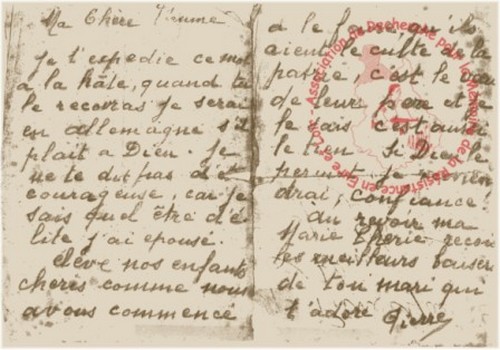 Ma Chère
je t'expédie ce mot
a la hâte, quand tu
le recevras je serai
en allemagne s'il
plait a Dieu. Je
ne te dis pas d'être
courageuse, car je
sais quel être d'é
lite j'ai epousé.
Elève nos enfants
cheris comme nous
avons commencé
qu'ils
aient le culte de la
patrie, c'est le vœu
de leur père et je
le sais c'est aussi
le tien Si Dieu le
permet je revien
drai, confiance!
au revoir ma
Marie Cherie reçois
les meilleurs baisers
de ton mari qui
t'adore Pierre
Association de Recherche pour la Mémoire de la Résistance en Eure et Loir